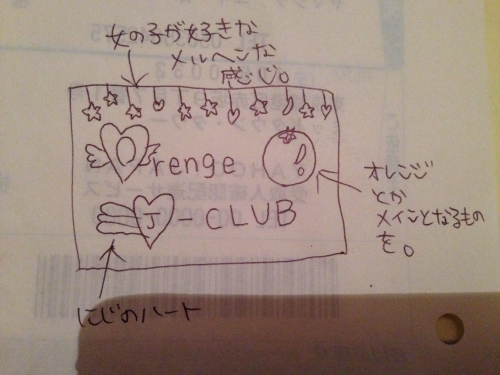 女の子が好きな
メルヘンな
感じ。
Orenge
J-CLUB
オレンジ
とか
メインとなるもの
を。
にじのハート